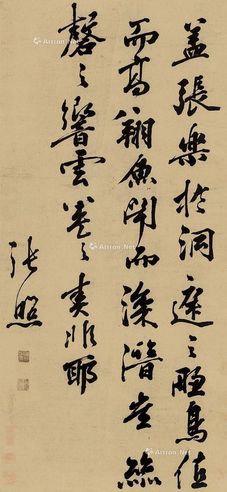 蓋張樂於洞庭之野鳥值
而高翔魚聞而深潛豈絲
磬之響雲英之奏非耶
張照